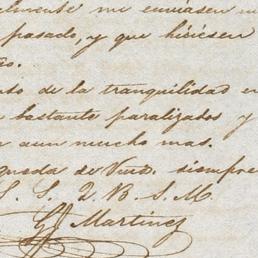 me enviésen
pasado, y que hiciésen
de la tranquilidad en
bastante paralizados y
aun mucho mas.
queda de Vmd. siempre
S. S. Q. B. S. M.
Martinez